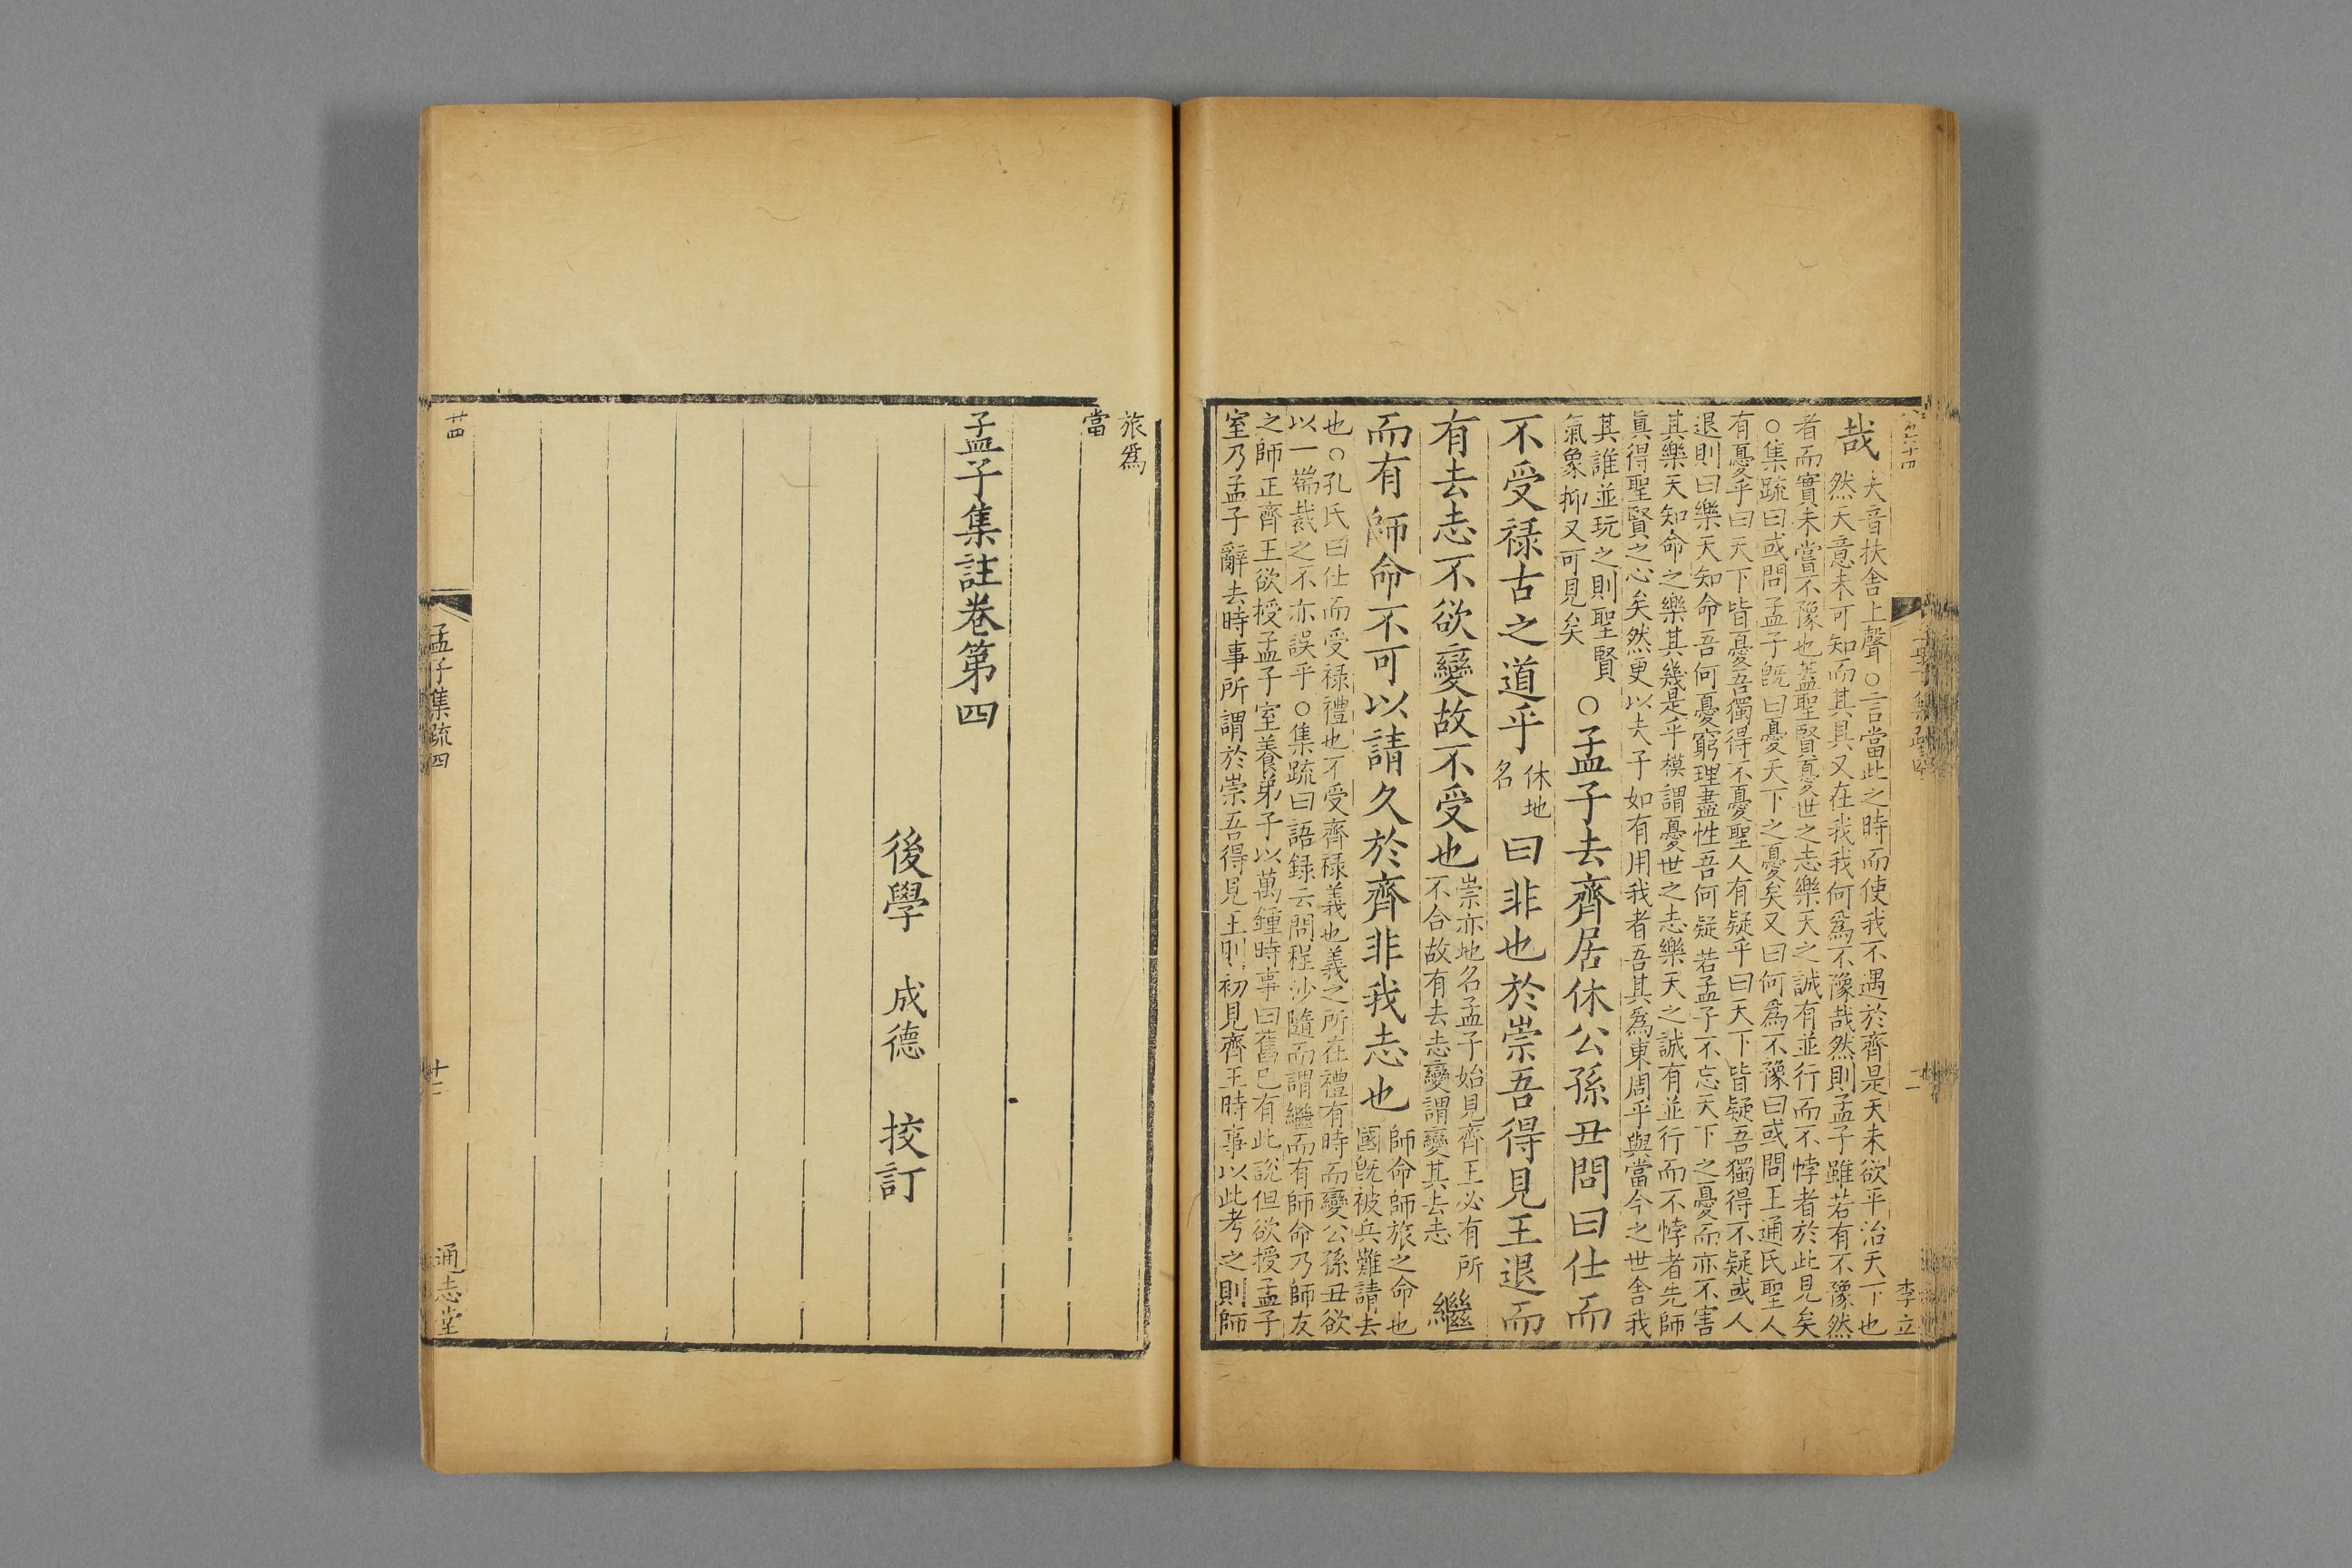 李立
哉
夫音扶舍上聲○言當此之時而使我不遇於齊是天未欲平治天下也
然天意未可知而其具又在我我何爲不豫哉然則孟子雖若有不豫然
者而實未嘗不豫也蓋聖賢憂世之志樂天之誠有並行而不悖者於此見矣
○集疏曰或問孟子旣曰憂天下之憂矣又曰何爲不豫曰或問王通氏聖人
有憂乎曰天下皆憂吾獨得不憂聖人有疑乎曰天下皆疑吾獨得不疑或人
退則曰樂天知命吾何憂窮理盡性吾何疑若孟子不忘天下之憂而亦不害
其樂天知命之樂其幾是乎模謂憂世之志樂天之誠有並行而不悖者先師
眞得聖賢之心矣然更以夫子如有用我者吾其爲東周乎與當今之世舍我
其誰並玩之則聖賢
氣象抑又可見矣
○孟子去齊居休公孫丑問曰仕而
不受祿古之道乎
休地
名
曰非也於崇吾得見王退而
有去志不欲變故不受也
崇亦地名孟子始見齊王必有所
不合故有去志變謂變其去志
繼
而有師命不可以請久於齊非我志也
師命師旅之命也
國旣被兵難請去
也○孔氏曰仕而受祿禮也不受齊祿義也義之所在禮有時而變公孫丑欲
以一端裁之不亦誤乎○集疏曰語録云問程沙隨而謂繼而有師命乃師友
之師正齊王欲授孟子室養弟子以萬鍾時事曰舊已有此說但欲授孟子
室乃孟子辭去時事所謂於崇吾得見王則初見齊王時事以此考之則師
旅爲
當
孟子集註卷第四
後學 成德 挍訂
廿四
孟子集疏四
通志堂